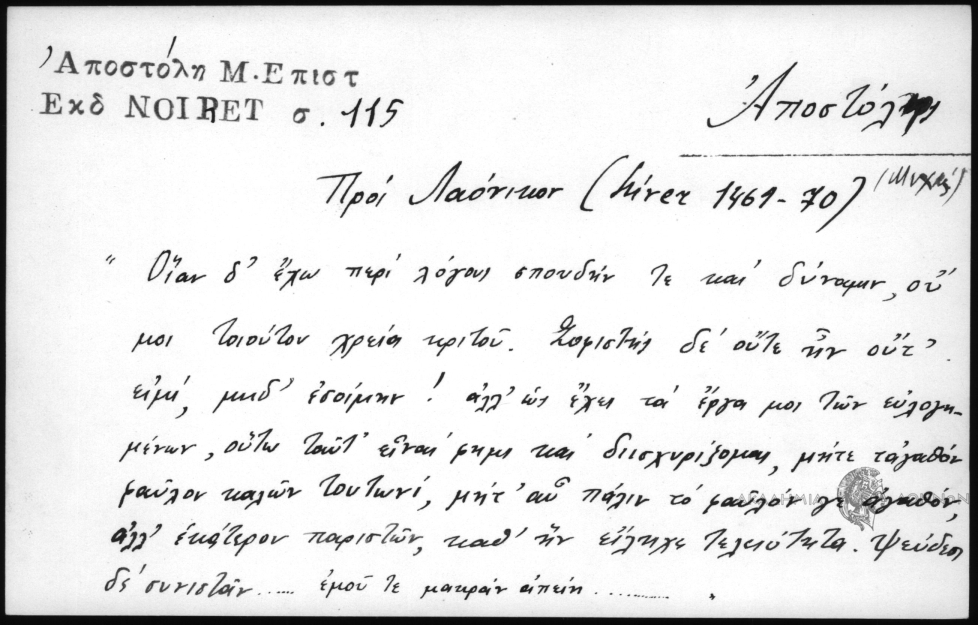 Ἀποστόλη Μ. Επιστ
Εκδ NOIRET σ. 115
Ἀποστόλης
(Μιχαήλ)
Πρός Λαόνικον (hiver 1461-70)
" Οἵαν δ' ἔχω περί λόγους σπουδήν τε καί δύναμιν, οὔ
μοι τοιούτου χρεία κριτοῦ. Σοφιστής δέ οὔτε ἦν οὔτ'
εἰμί, μηδ' ἐσοίμην! ἀλλ' ὡς ἔχει τά ἔργα μοι τῶν εὐλογη-
μένων, οὕτω ταῦτ' εἶναί φημι καί διισχυρίζομαι, μήτε τἀγαθόν
φαῦλον καλῶν τουτωνί, μήτ' αὖ πάλιν τό φαῦλόν γε ἀγαθόν,
ἀλλ' ἑκάτερον παριστῶν, καθ' ἥν εἴληχε τελειότητα. Ψεύδεσι
δέ συνιστᾶν ..... ἐμοῦ τε μακράν ἀπείη ............